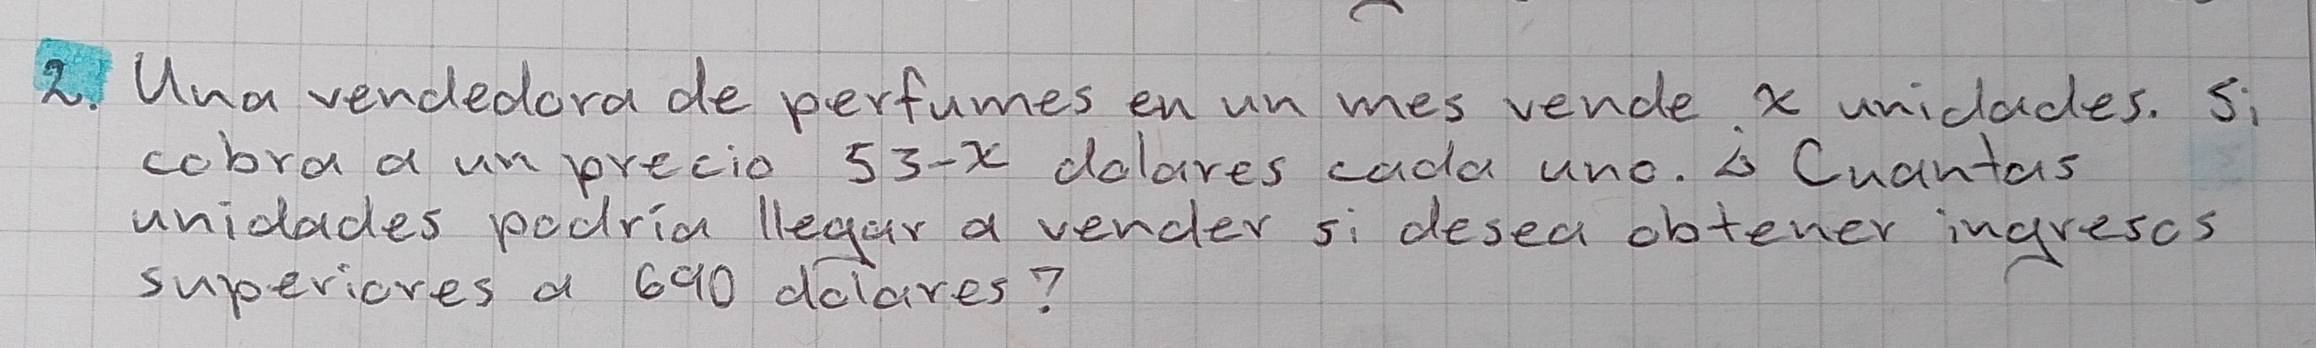 2. Una vendedora de perfumes en un mes vende x unidades. Si
cobra a un precio 53-x dolares cada uno. ¿ Cuantas
unidades podría llegar a vender si desea obtener ingresos
superiores a 690 dolares?